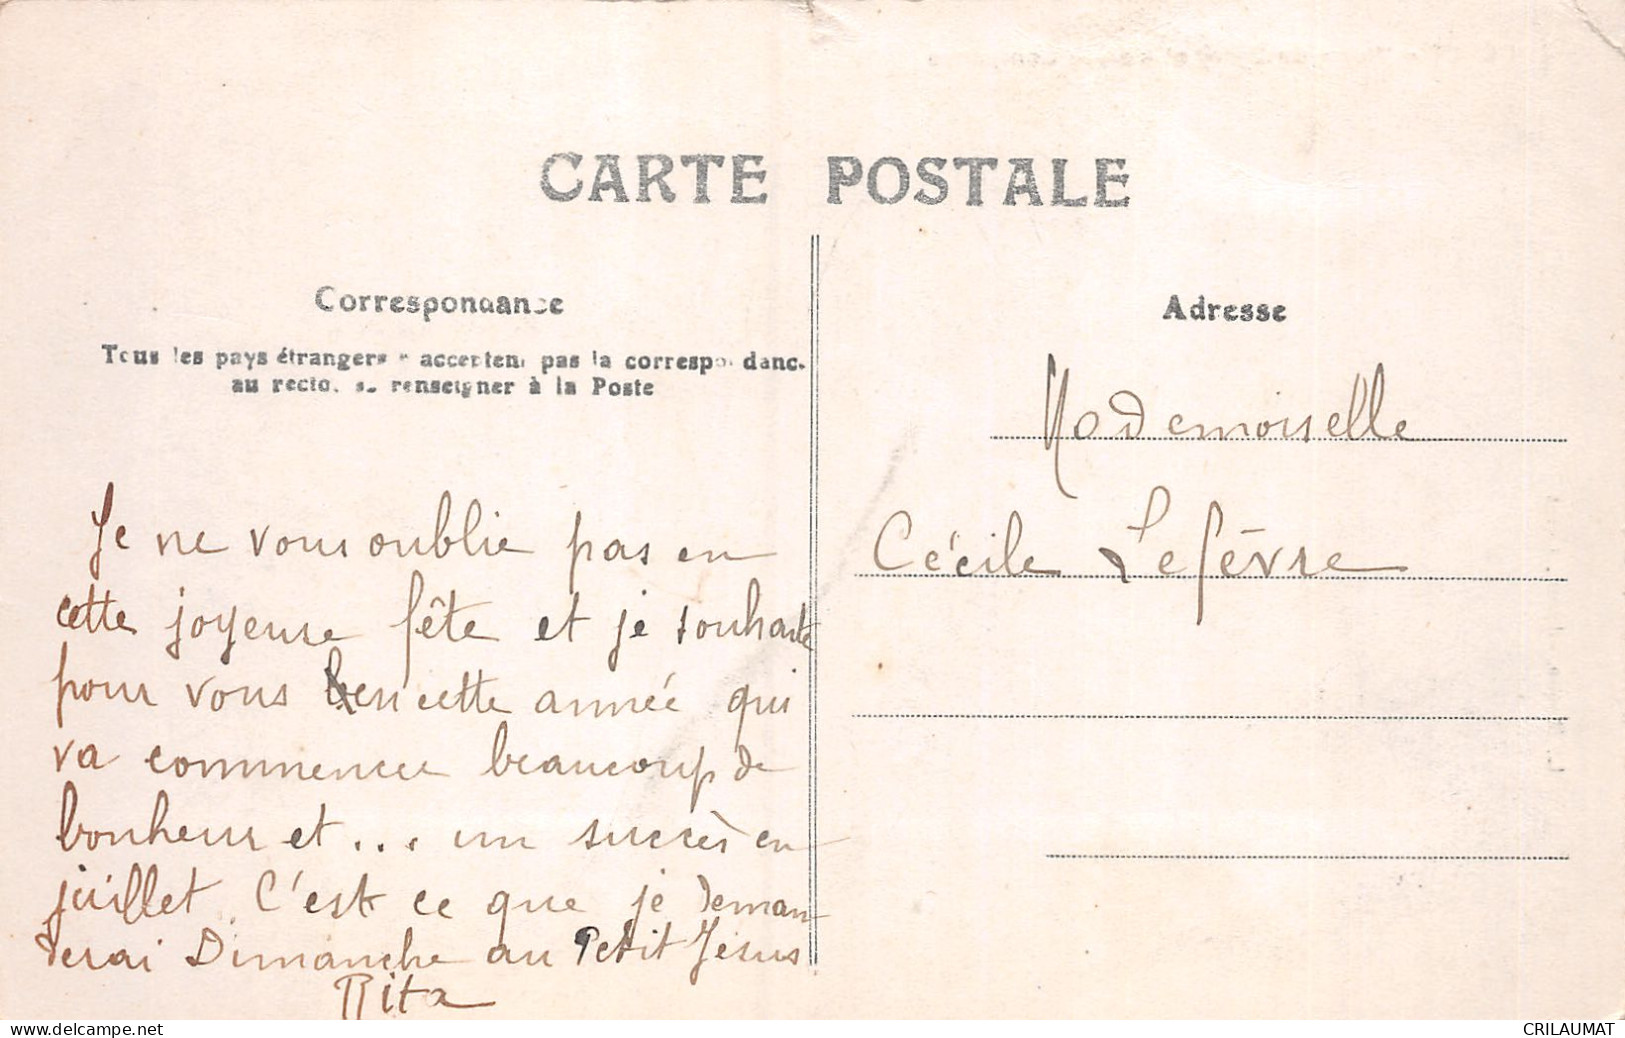 CARTE POSTALE
Correspondance
Tous les pays étrangers n'acceptent pas la correspondance
au recto. se renseigner à la Poste
Je ne vous oublie pas en
cette joyeuse fête et je souhaite
pour vous en cette année qui
va commencer beaucoup de
bonheur et ... un succès en
juillet. C'est ce que je deman-
derai Dimanche au Petit Jésus
Rita
Adresse
Mademoiselle
Cécile Lefèvre
www.delcampe.net
CRILAUMAT